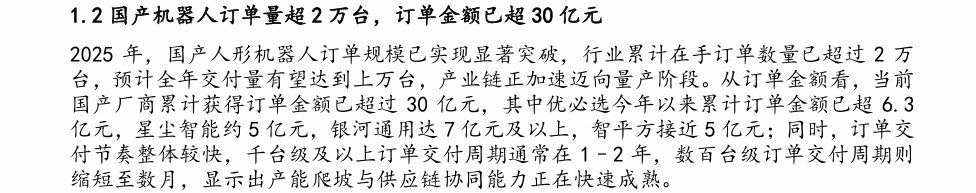 1.2 国产机器人订单量超 2 万台，订单金额已超 30 亿元
2025 年，国产人形机器人订单规模已实现显著突破，行业累计在手订单数量已超过 2 万
台，预计全年交付量有望达到上万台，产业链正加速迈向量产阶段。从订单金额看，当前
国产厂商累计获得订单金额已超过 30 亿元，其中优必选今年以来累计订单金额已超 6.3
亿元，星尘智能约 5 亿元，银河通用达 7 亿元及以上，智平方接近 5 亿元；同时，订单交
付节奏整体较快，千台级及以上订单交付周期通常在 1-2 年，数百台级订单交付周期则
缩短至数月，显示出产能爬坡与供应链协同能力正在快速成熟。